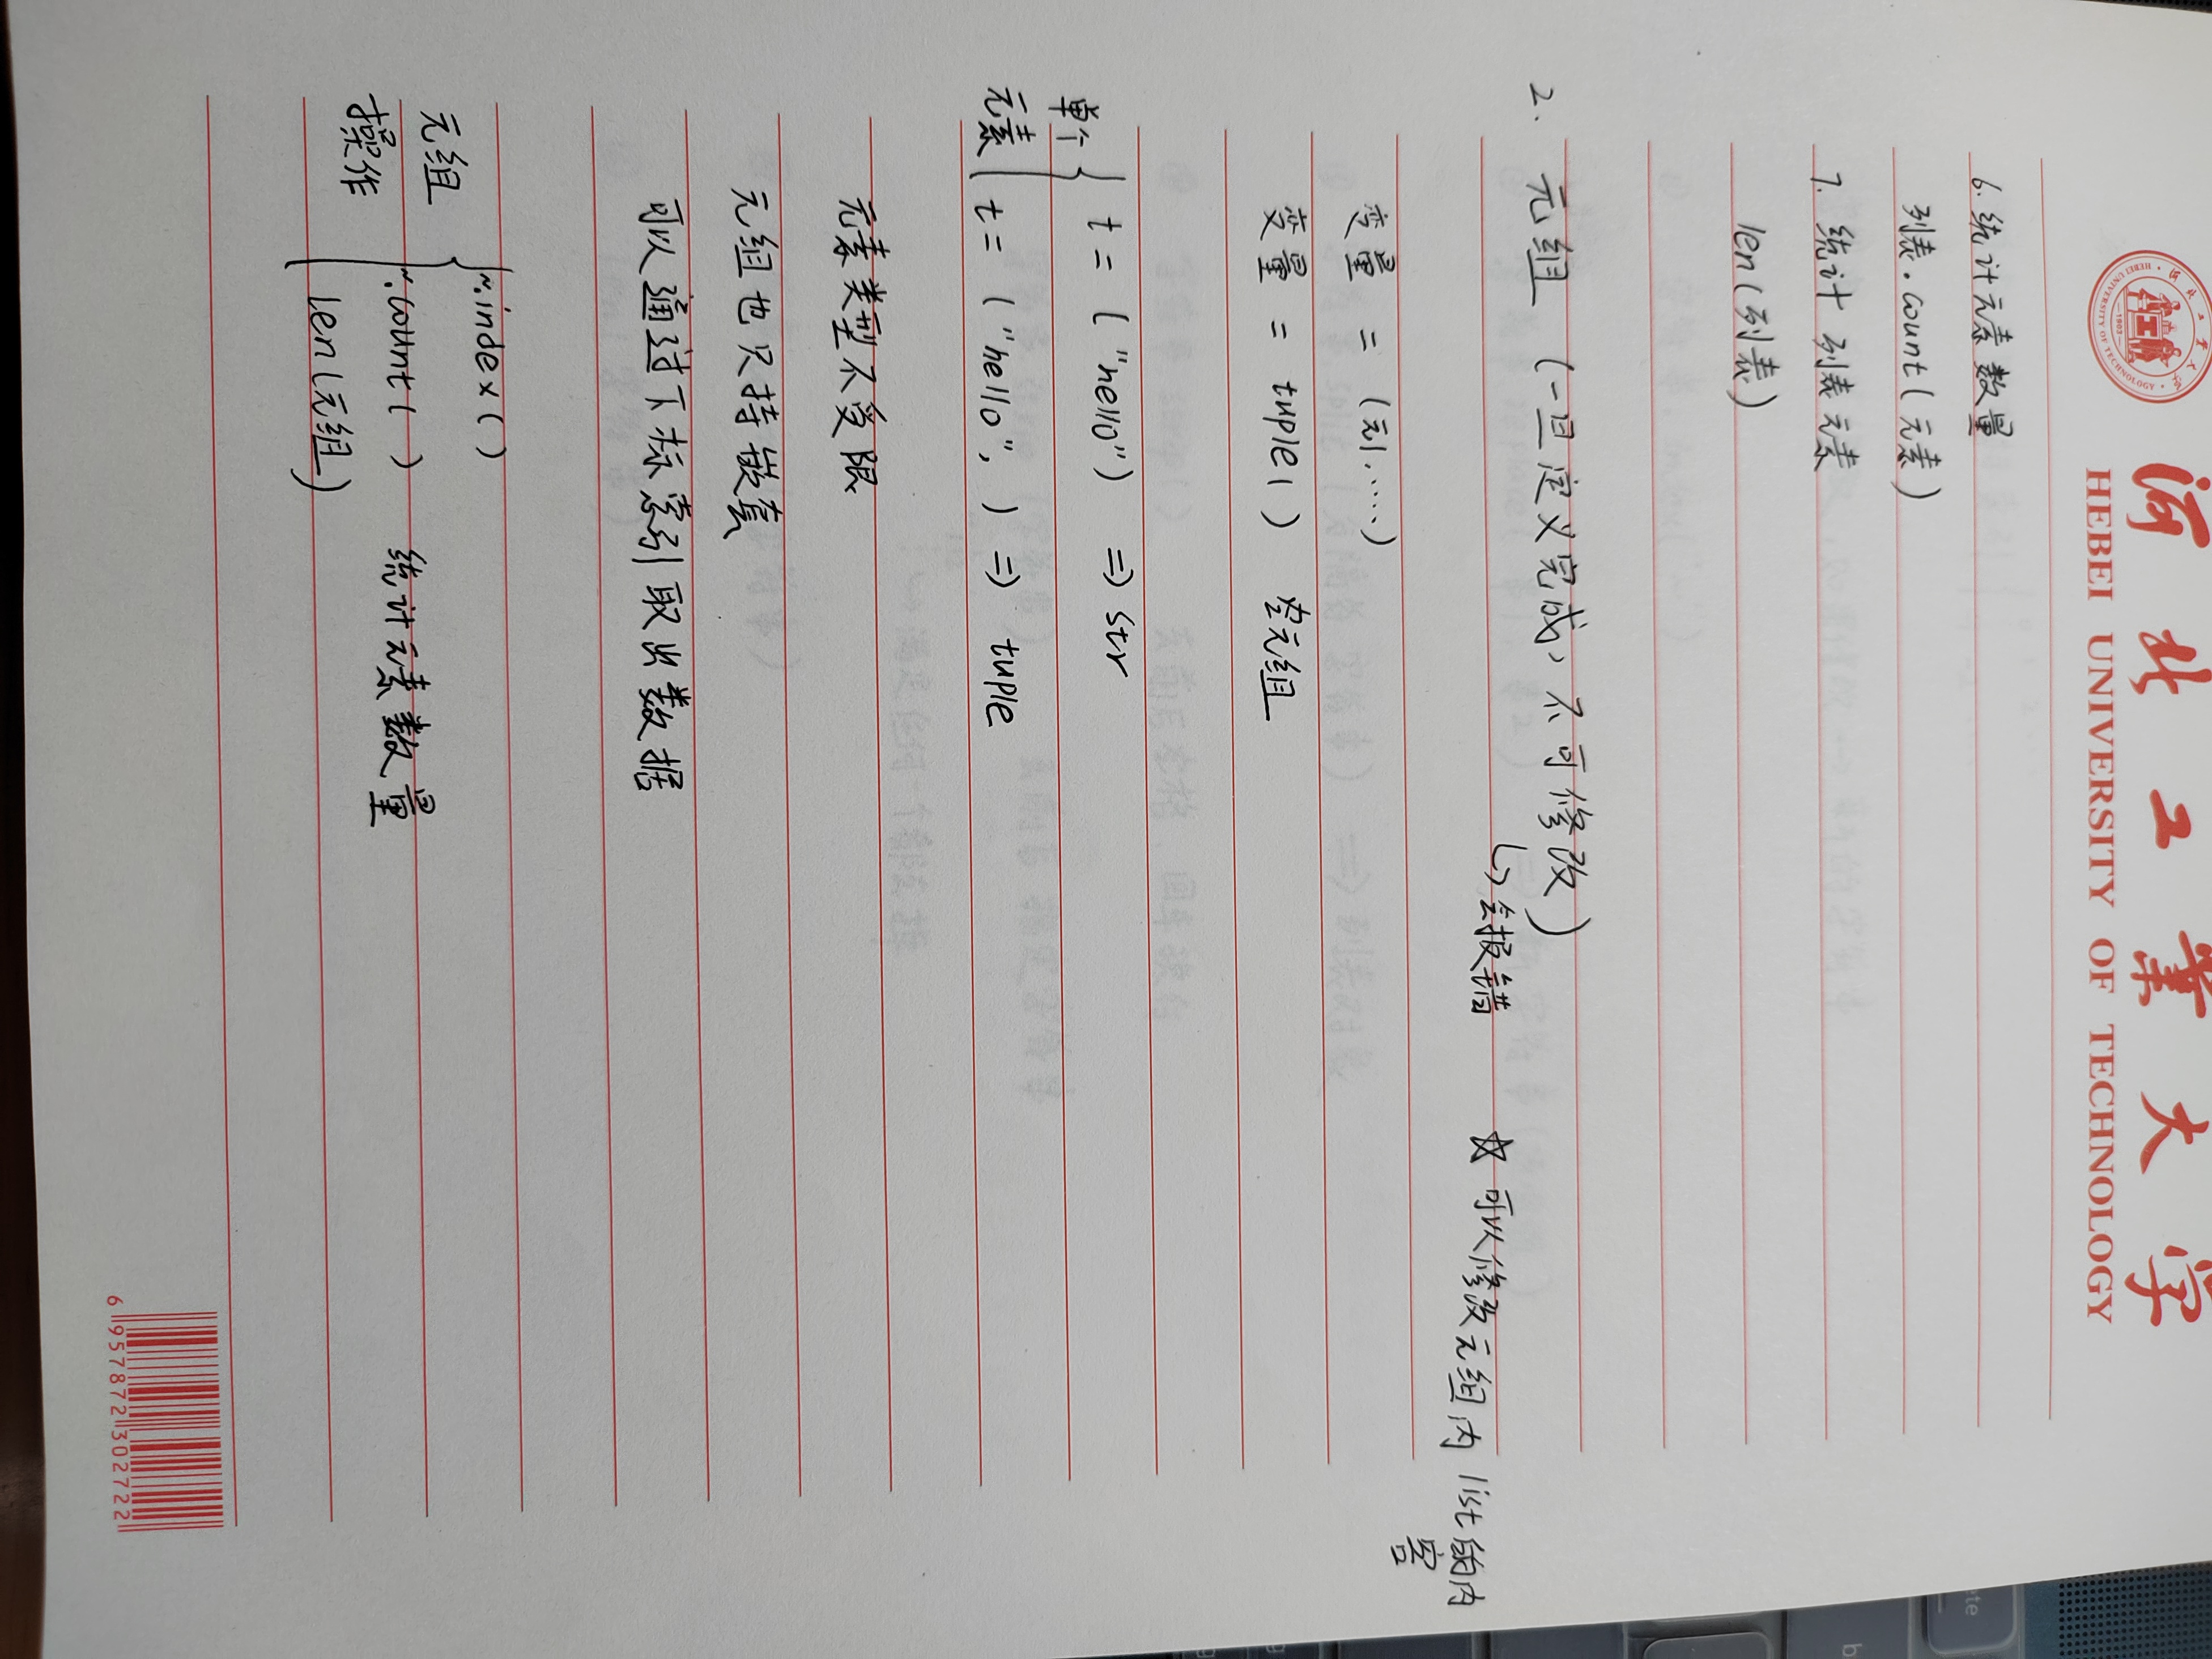 河北工業大学
HEBEI UNIVERSITY OF TECHNOLOGY
6. 统计元素数量
列表.count(元素)
7. 统计 列表元素
len(列表)
2. 元组 (一旦定义完成, 不可修改)
↳会报错 ☆ 可以修改元组内 list的内
容
变量 = (元1, ....)
变量 = tuple() 空元组
单个
元素
t = ("hello") => str
t = ("hello", ) => tuple
元素类型不受限
元组也只持嵌套
可以通过下标索引取出数据
元组
操作
~.index()
~.count( ) 统计元素数量
len(元组)
6 957872 302722